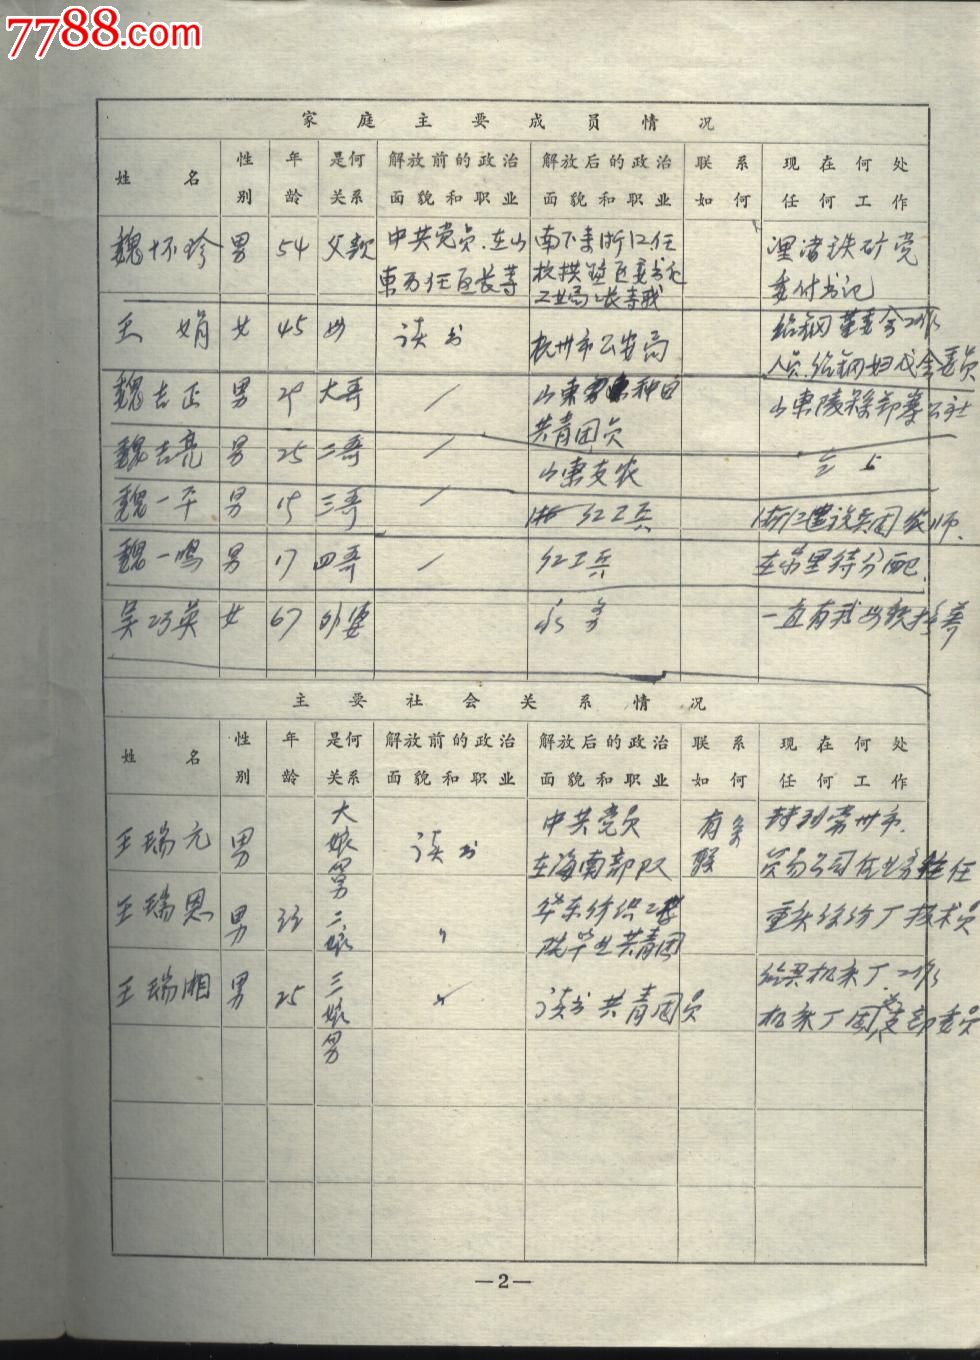 7788.com
家庭主要成员情况
姓名 性别 年龄 是何关系 解放前的政治面貌和职业 解放后的政治面貌和职业 联系如何 现在何处任何工作
魏怀珍 男 54 父亲 中共党员.在山 南下来浙江任 漓渚铁矿党
东历任区长等 杭拱墅区委书记 委付书记
工业局长等职
王娟 女 45 母 读书 杭州市公安局
人员.
魏吉正 男 29 大哥 / 山东 种田
共青团员
魏吉亮 男 25 二哥 / 山东支农 仝上
魏一平 男 15 三哥 / 红卫兵 浙江建设兵团 师.
魏一鸣 男 17 四哥 / 红卫兵 在家里待分配.
吴巧英 女 67 外婆 家务 一直有我母亲抚养
主要社会关系情况
姓名 性别 年龄 是何关系 解放前的政治面貌和职业 解放后的政治面貌和职业 联系如何 现在何处任何工作
王瑞元 男 大娘舅 读书 中共党员 有 联 常州市.
在海南部队
王瑞恩 男 二娘 华东纺织工学 重庆 纺厂技术员
院毕业共青团
王瑞湘 男 25 三娘舅 读书共青团员 厂.工作
机床厂团支部委员
—2—